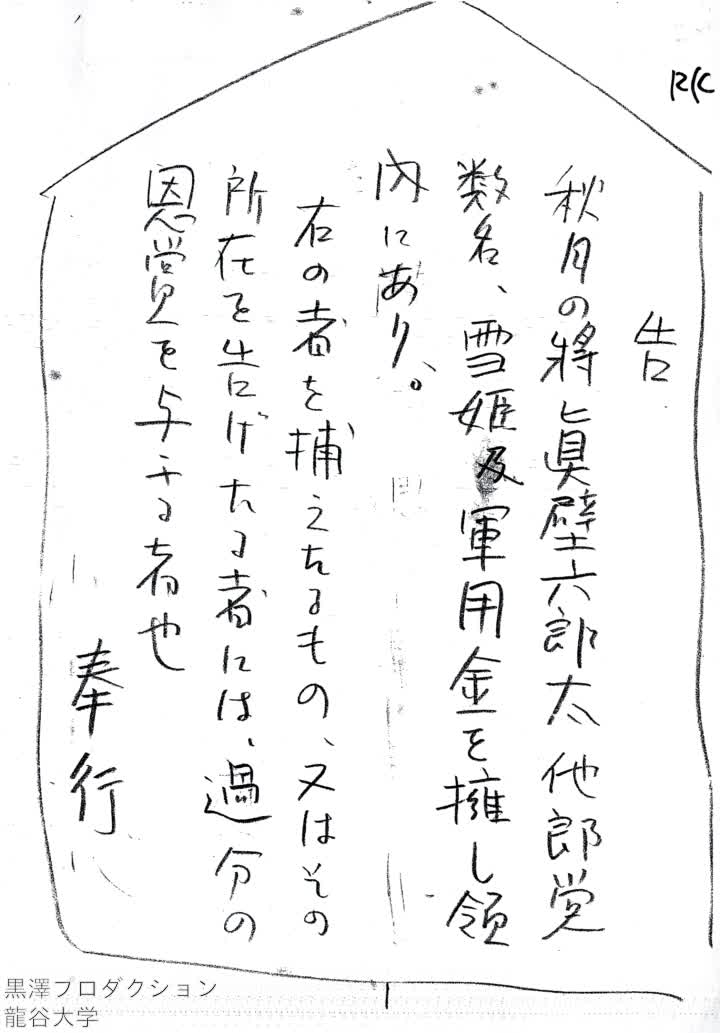 告
秋月の將眞壁六郎太他郎党
数名、雪姫及軍用金を擁し領
内にあり。
右の者を捕えたるもの、又はその
所在を告げたる者には、過分の
恩賞を与うる者也
奉行
黒澤プロダクション
龍谷大学